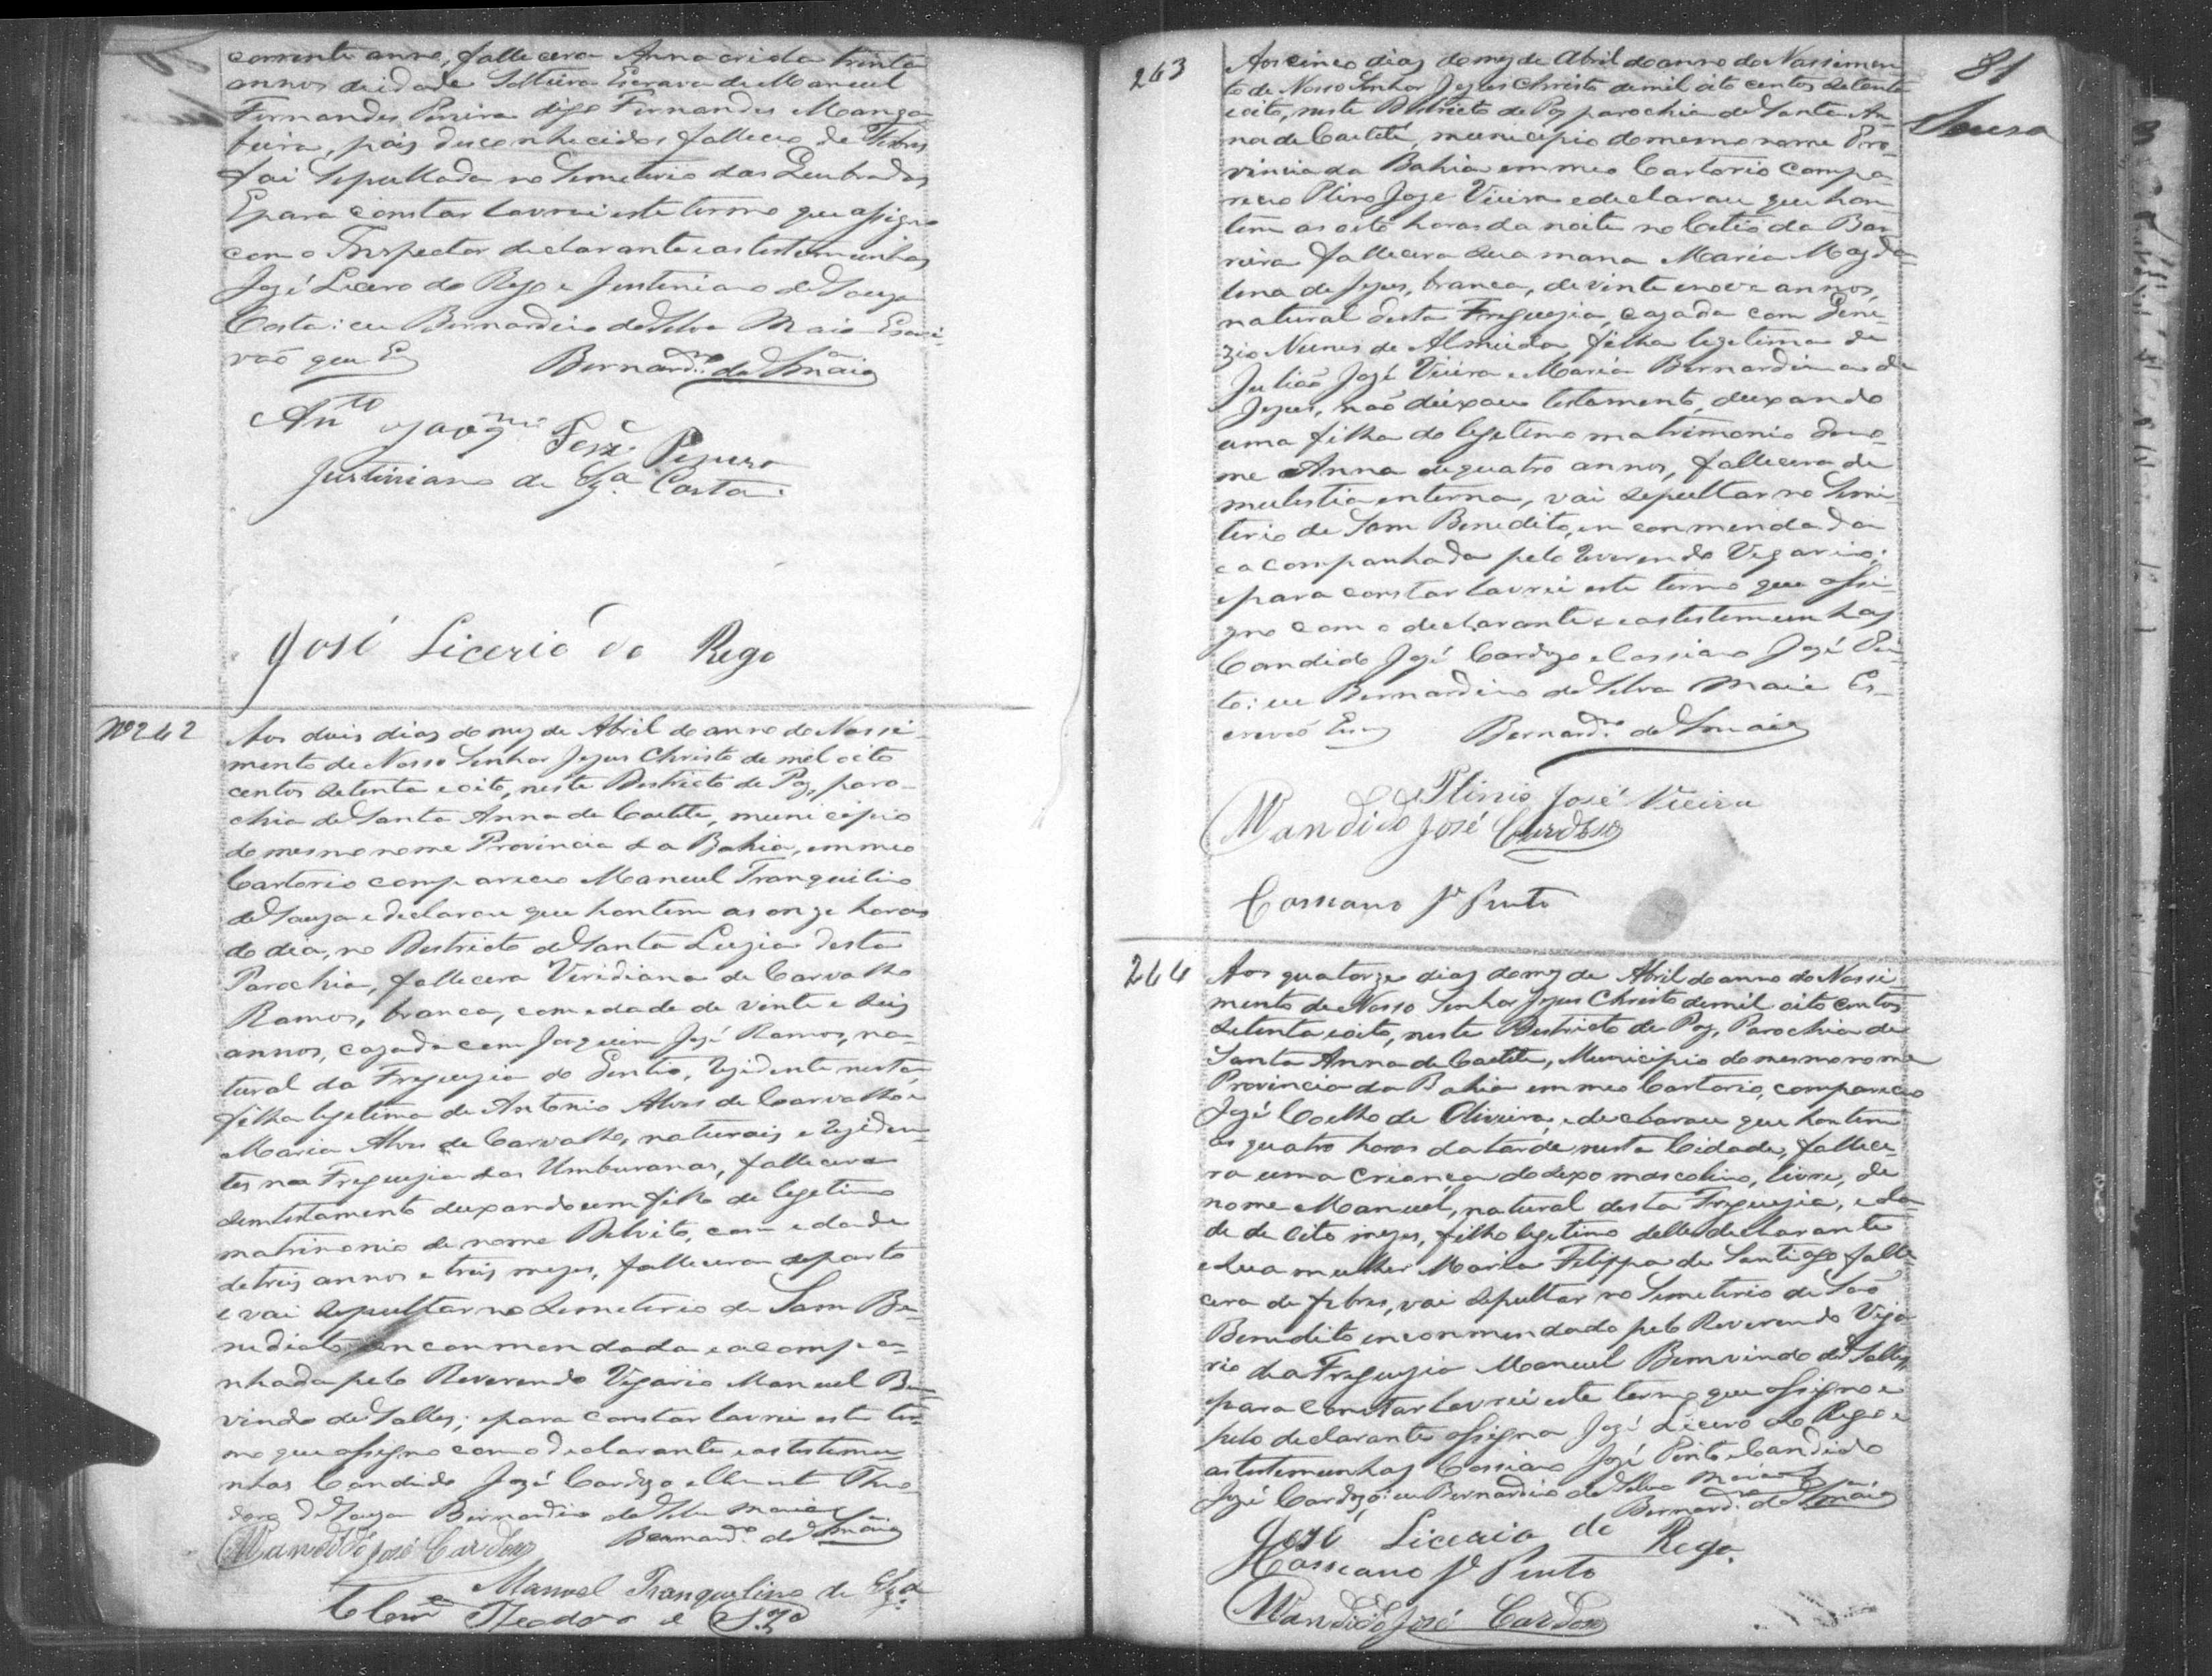 corrente anno, fallecera Anna criola trinta
annos de idade Solteira Escrava de Manuel
Fernandes Pereira digo Fernandes Manga
beira, pais desconhecidos falleceo de Febres
foi Sepultada no Semeterio das
E para constar lavrei este termo que assigno
com o Inspector declarante e as testemunhas
Jozé Licero do Rego e Justiniano de Souza
Costa: eu Bernardino da Silva Maia Escri-
vaõ que E
Bernardno da Sa Maia
Anto Joaqm Ferz Pereira
Justiniano de Sza Costa.
José Licerio do Rego
No 262
Aos dois dias do mez de Abril do anno do Nassi-
mento de Nosso Senhor Jezus Christo de mil oito
centos setenta e oito, neste Destricto de Paz, paro-
chia de Santa Anna de Caetite, municipio
do mesmo nome Provincia da Bahia, em meo
Cartorio compareceo Manuel Tranquilino
de Souza e declarou que hontem as onze horas
do dia, no Destricto de Santa Luzia desta
Parochia, fallecera Viridiana de Carvalho
Ramos, branca, com edade de vinte e seis
annos, cazada com Joaquim Jozé Ramos, na-
tural da Freguezia do Gentio, rezidente nesta,
filha legetima de Antonio Alves de Carvalho e
Maria Alves de Carvalho, naturais e reziden-
tes na Freguezia das Umburanas, fallecera
sem testamento deixando um filho de legetimo
matrimonio de nome com edade
de treis annos e treis mezes, fallecera de parto
e vai sepultar no Semeterio de Sam Be-
nedicto, enconmendada e acompa-
nhada pelo Reverendo Vigario Manuel Bem
vindo de Salles; e para constar lavrei este ter-
mo que assigno com o declarante e as testemu-
nhas Candido Jozé Cardozo e Clemente Theo-
doro de Souza Bernardino da Silva Maia
Bernardno da Sa Maia
Candido José Cardoso
Manoel Tranquelino de Sza
Cleme Theodoro de Sza
81
Sousa
263
Aos cinco dias do mez de Abril do anno do Nassimen-
to de Nosso Senhor Jezus Christo de mil oito centos setenta
e oito, neste Destricto de Paz parochia de Santa An-
na de Caetité, municipio do mesmo nome Pro-
vincia da Bahia em meo Cartorio compa-
receo Plino Joze Vieira e declarou que hon-
tem as oito horas da noite no Citio da Bar
reira fallecera sua mana Maria Magda-
lena de Jezus, branca, de vinte e nove annos,
natural desta Freguezia, cazada com Gene-
zio Nunes de Almeida filha legetima de
Juliaõ Jozé Vieira e Maria Bernardina de
Jezus, naõ deixou testamento, deixando
uma filha do legetimo matrimonio de no-
me Anna de quatro annos, fallecera de
mulestia enterna, vai sepultar no Semi-
terio de Sam Benedito, enconmendada
e acompanhada pelo reverendo Vegario;
e para constar lavrei este termo que assi-
gno com o declarante e as testemunhas
Candido Jozé Cardozo e Cassiano Jozé Pin-
to: eu Bernardino da Silva Maia Es-
crevaõ
Bernardno da Sa Maia
Plinio José Vieira
Candido José Cardoso
Cassiano Je Pinto
264
Aos quatorze dias do mez de Abril do anno do Nassi-
mento de Nosso Senhor Jezus Christo de mil oito centos
setenta e oito, neste Destricto de Paz, Parochia de
Santa Anna de Caetite, Municipio do mesmo nome
Provincia da Bahia em meo Cartorio, compareceo
Jozé Coelho de Oliveira, e declarou que hontem
as quatro horas da tarde nesta Cidade, fallece-
ra uma criança do sexo mascolino, livre, de
nome Manuel, natural desta Freguezia, eda-
de de oito mezes, filho legetimo delle declarante
e sua mulher Maria Filippa de Santiago falle-
cera de febres, vai sepultar no Semeterio de Saõ
Benedito enconmendado pelo Reverendo Viga
rio da Freguezia Manuel Bemvindo de Salles,
e para constar lavrei este termo que assigno e
pelo declarante assigna Jozé Licero do Rego e
as testemunhas Cassiano Jozé Pinto e Candido
Jozé Cardozo; eu Bernardino da Silva Maia
Bernardno da Sa Maia
José Licerio do Rego.
Cassiano Je Pinto
Candido José Cardoso